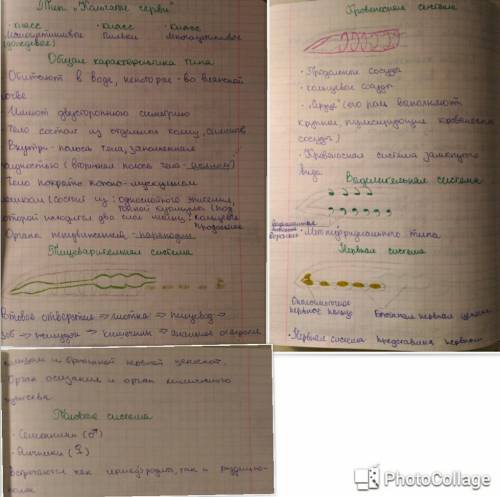 Тип "Кольчатые черви"
• класс • класс • класс
Малощетинковые Пиявки Многощетинковые
(дождевые)
Общая характеристика типа
Обитают в воде, некоторые - во влажной
почве
Имеют двустороннюю симметрию
Тело состоит из отдельных колец, сегментов
Внутри - полость тела, заполненная
жидкостью (вторичная полость тела - целом)
Тело покрыто кожно-мускульным
мешком (состоит из: однослойного эпителия,
тонкой кутикулы (под
которой находятся два слоя мышц: кольцевые
Продольные
Органы передвижения - параподии
Пищеварительная система
Ротовое отверстие => глотка => пищевод =>
зоб => желудок => кишечник => анальное отверстие
Кровеносная система
• Продольные сосуды
• кольцевые сосуды
• "Сердца" (его роль выполняют
крупные, пульсирующие кровеносные
сосуды)
• Кровеносная система замкнутого
вида
Выделительная система
• Метанефридиального типа
Нервная система
Окологлоточное
нервное кольцо
Брюшная нервная цепочка
• Нервная система представлена нервным
кольцом и брюшной нервной цепочкой.
Орган осязания и орган химического
чувства
Половая система
• Семенники (♂)
• Яичники (♀)
Встречаются как гермафродиты, так и раздельно-
полые
PhotoCollage